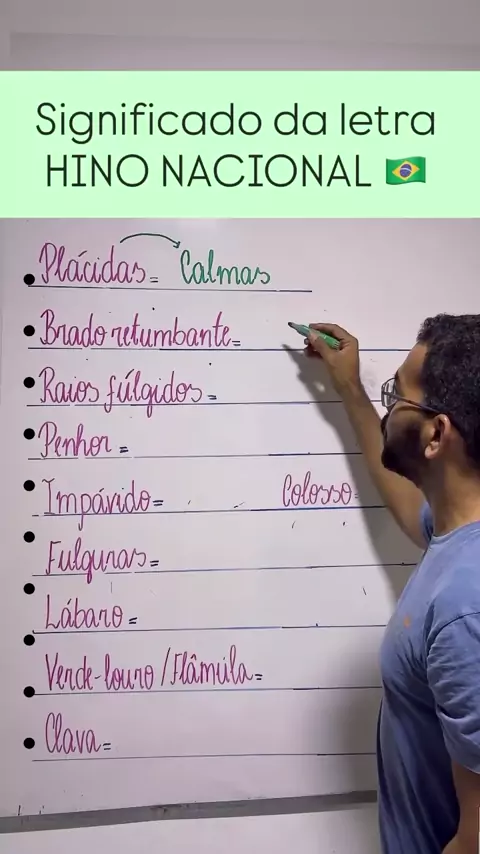 Significado da letra
HINO NACIONAL 🇧🇷
Plácidas = Calmas
Brado retumbante =
Raios fúlgidos =
Penhor =
Impávido = Colosso =
Fulguras =
Lábaro =
Verde-louro / Flâmula =
Clava =